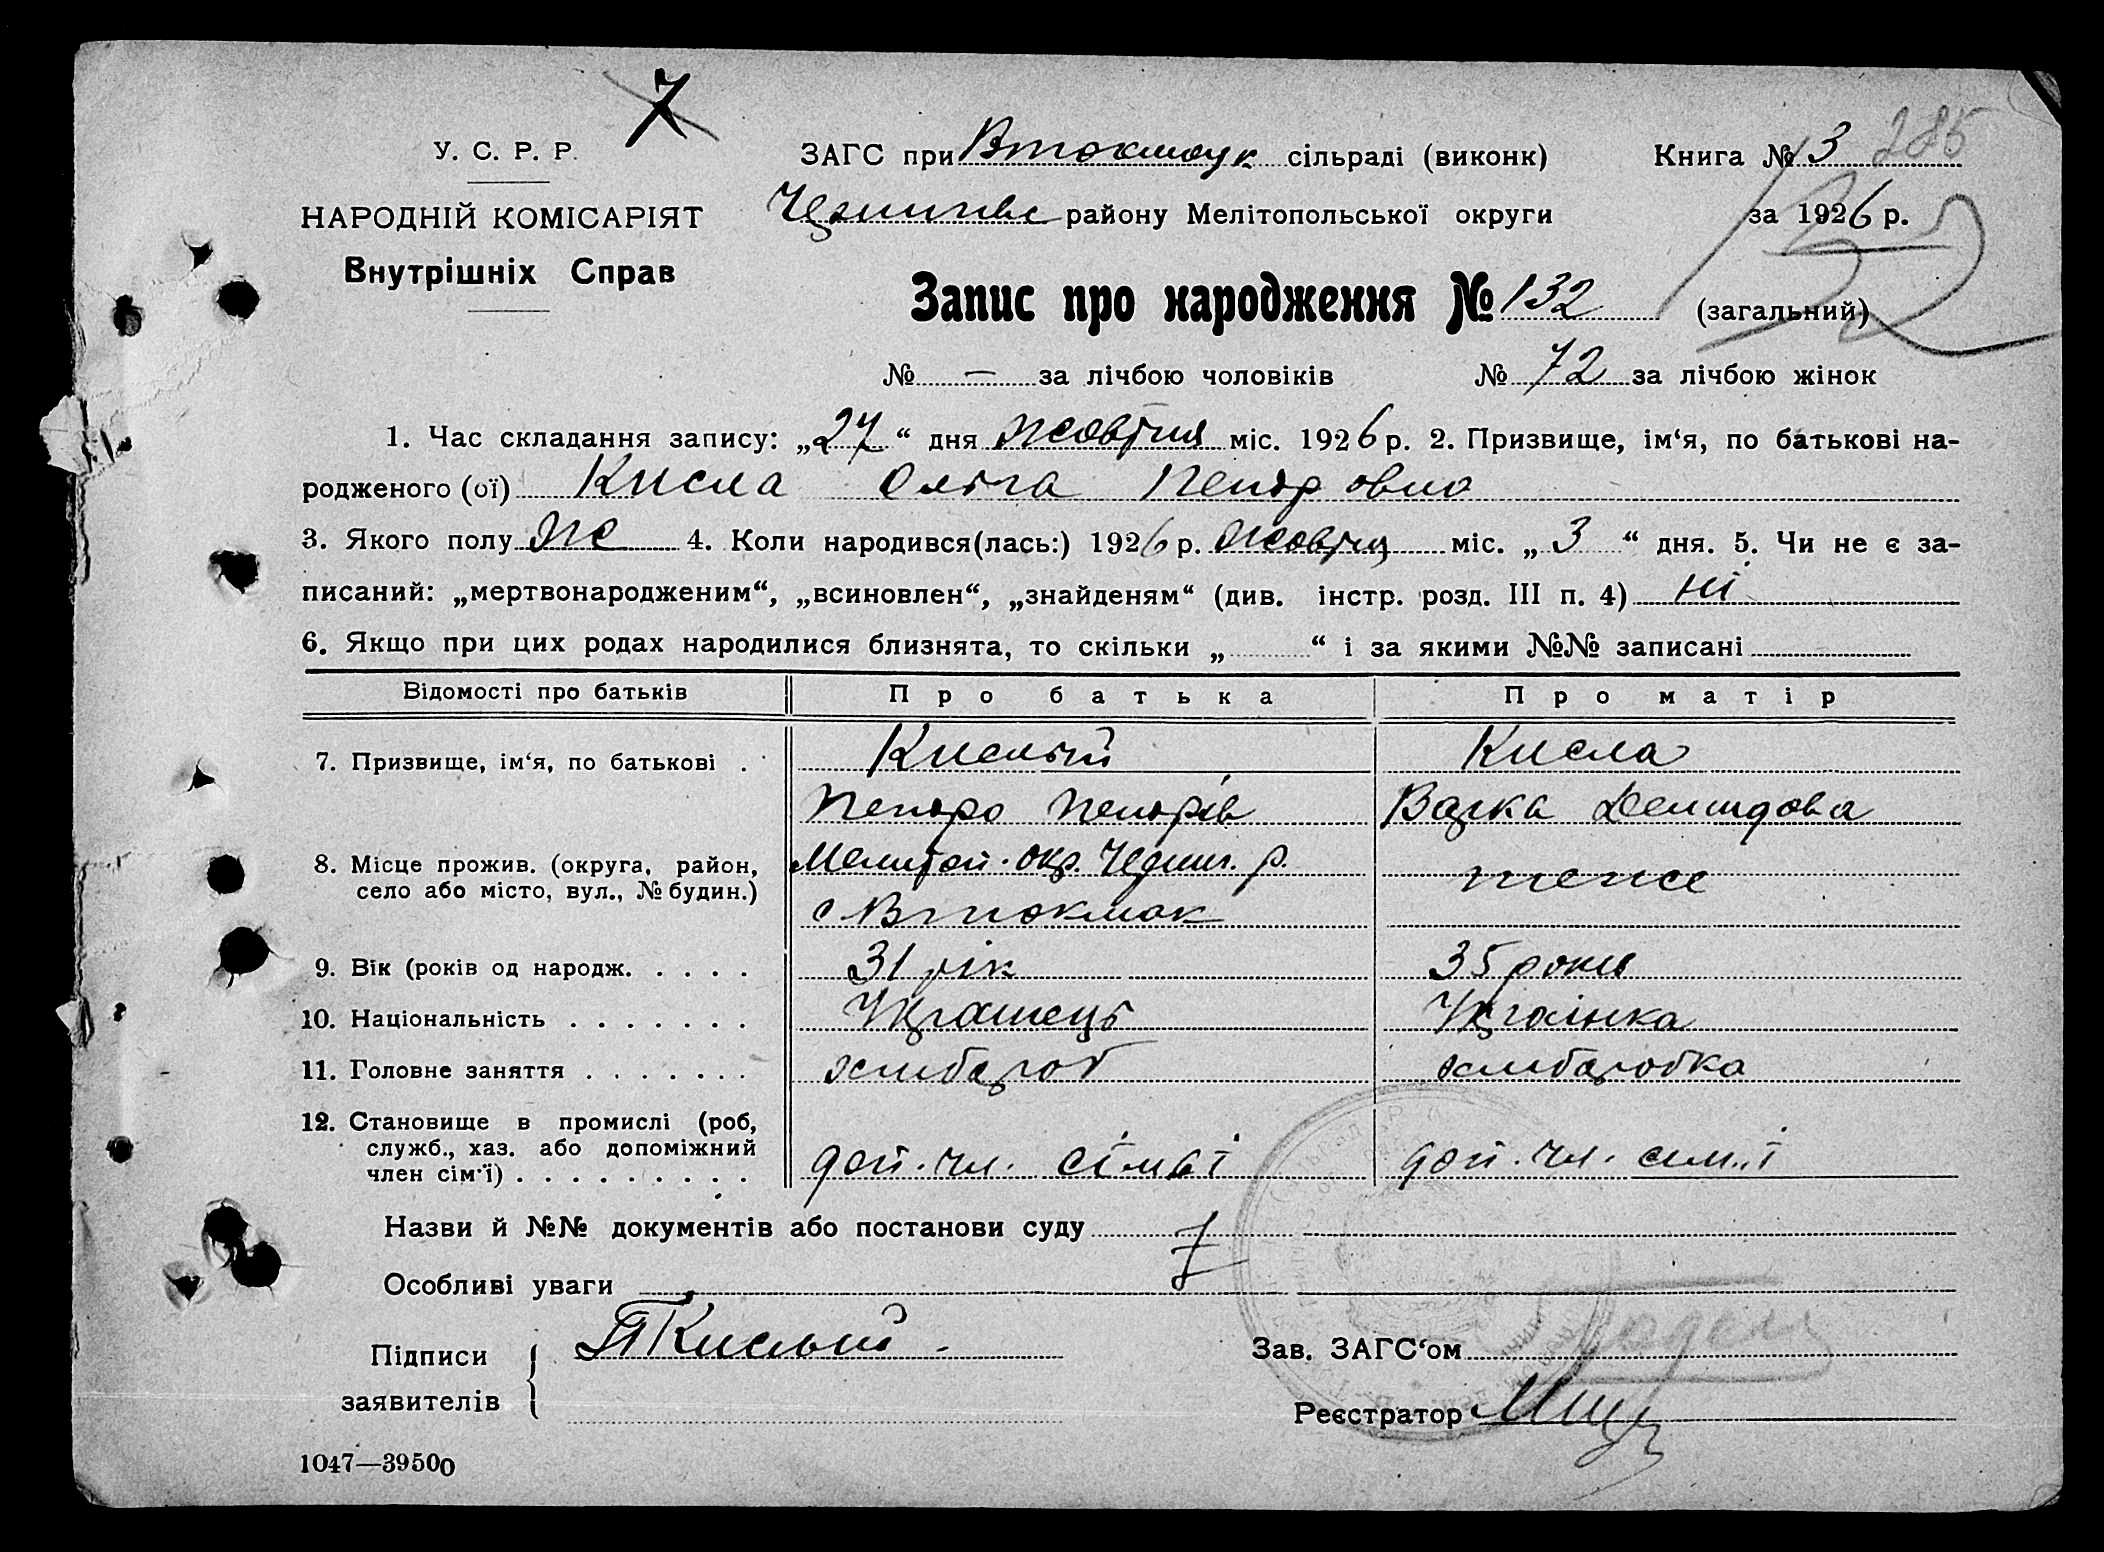 7
У. С. Р. Р.
НАРОДНІЙ КОМІСАРІЯТ
Внутрішніх Справ
ЗАГС при Втокмацк сільраді (виконк)
Книга № 3 285
району Мелітопольської округи
за 1926 р.
Запис про народження № 132 (загальний)
132
№ — за лічбою чоловіків № 72 за лічбою жінок
1. Час складання запису: „27“ дня жовтня міс. 1926 р. 2. Призвище, ім‘я, по батькові на-
родженого (ої) Кисла Ольга Петровна
3. Якого полу ж 4. Коли народився(лась:) 1926 р. жовтн міс. „3“ дня. 5. Чи не є за-
писаний: „мертвонародженим“, „всиновлен“, „знайденям“ (див. інстр. розд. III п. 4) ні
6. Якщо при цих родах народилися близнята, то скільки „ “ і за якими №№ записані
Відомості про батьків Про батька Про матір
7. Призвище, ім‘я, по батькові . Кислый Кисла
Петро Петрів Демидова
8. Місце прожив. (округа, район, село або місто, вул., № будин.)
Мелитоп. окр. р.
с Втокмак
теж
9. Вік (років од народж. . . . . 31 рік 35 роки
10. Національність . . . . . . . Українець Українка
11. Головне заняття . . . . . . . хлибороб хлиборобка
12. Становище в промислі (роб,
служб., хаз. або допоміжний
член сім'ї) . . . . . . . . . доп. чл. сімьі доп. чл. сим..ї
Назви й №№ документів або постанови суду
Особливі уваги
Підписи
заявителів
П Кислый
Зав. ЗАГС‘ом
Реєстратор
1047—39500